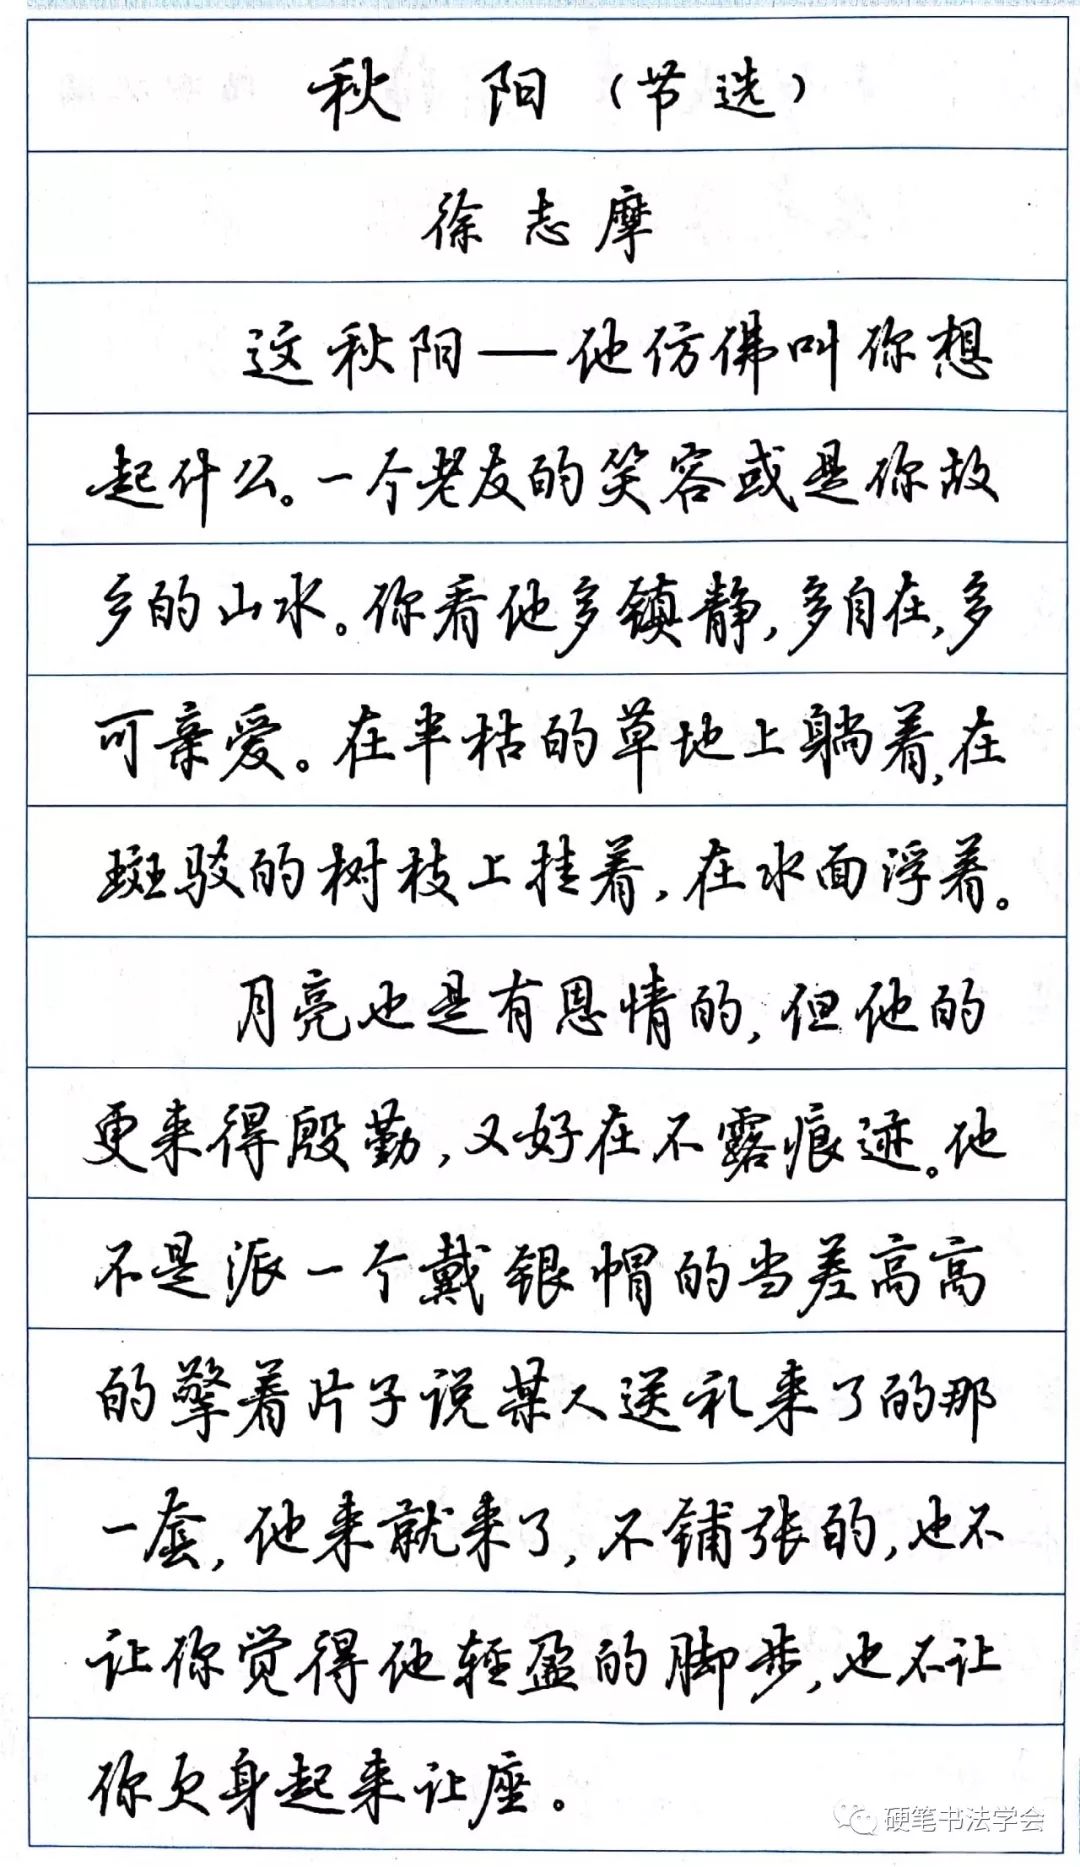 秋 阳（节选）
徐志摩
这秋阳——他仿佛叫你想
起什么。一个老友的笑容或是你故
乡的山水。你看他多镇静，多自在，多
可亲爱。在半枯的草地上躺着，在
斑驳的树枝上挂着，在水面浮着。
月亮也是有恩情的，但他的
更来得殷勤，又好在不露痕迹。他
不是派一个戴银帽的当差高高
的擎着片子说某人送礼来了的那
一套，他来就来了，不铺张的，也不
让你觉得他轻盈的脚步，也不让
你欠身起来让座。
硬笔书法学会